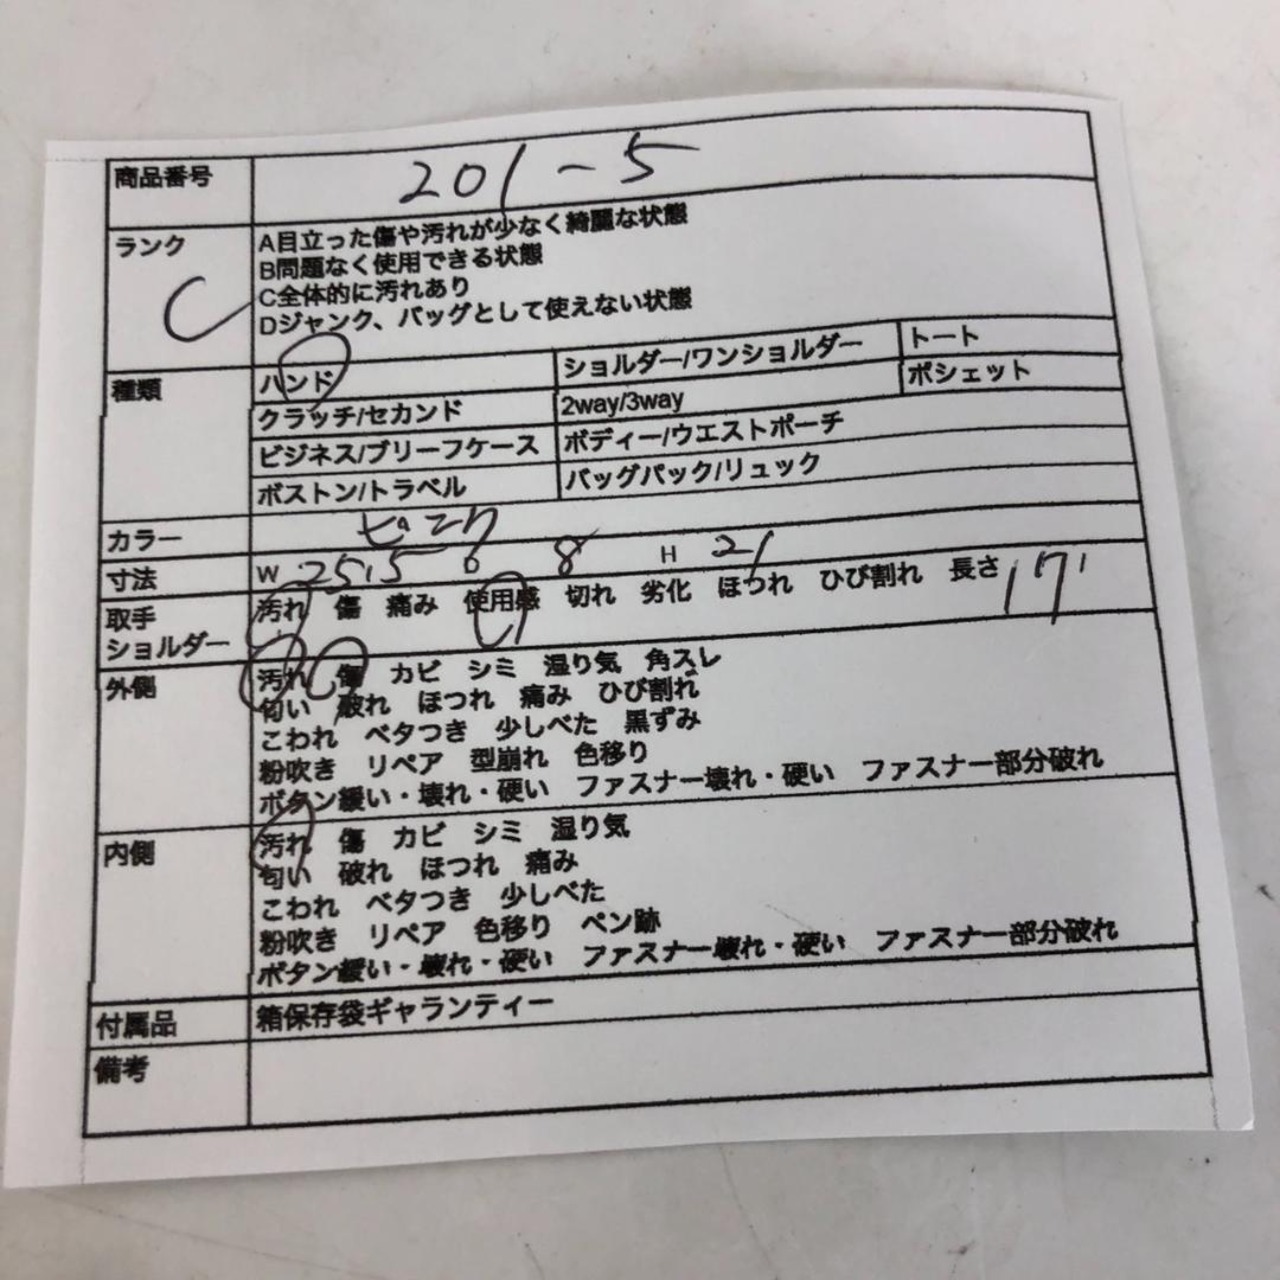 商品番号 201-5
ランク C
A目立った傷や汚れが少なく綺麗な状態
B問題なく使用できる状態
C全体的に汚れあり
Dジャンク、バッグとして使えない状態
種類 ハンド ショルダー/ワンショルダー トート
クラッチ/セカンド 2way/3way ポシェット
ビジネス/ブリーフケース ボディー/ウエストポーチ
ボストン/トラベル バッグパック/リュック
カラー
寸法 W 25.5 8 H 21
取手 汚れ 傷 痛み 使用感 切れ 劣化 ほつれ ひび割れ 長さ 17
ショルダー
外側 汚れ 傷 カビ シミ 湿り気 角スレ
匂い 破れ ほつれ 痛み ひび割れ
こわれ ベタつき 少しべた 黒ずみ
粉吹き リペア 型崩れ 色移り
ボタン緩い・壊れ・硬い ファスナー壊れ・硬い ファスナー部分破れ
内側 汚れ 傷 カビ シミ 湿り気
匂い 破れ ほつれ 痛み
こわれ ベタつき 少しべた
粉吹き リペア 色移り ペン跡
ボタン緩い・壊れ・硬い ファスナー壊れ・硬い ファスナー部分破れ
付属品 箱保存袋ギャランティー
備考